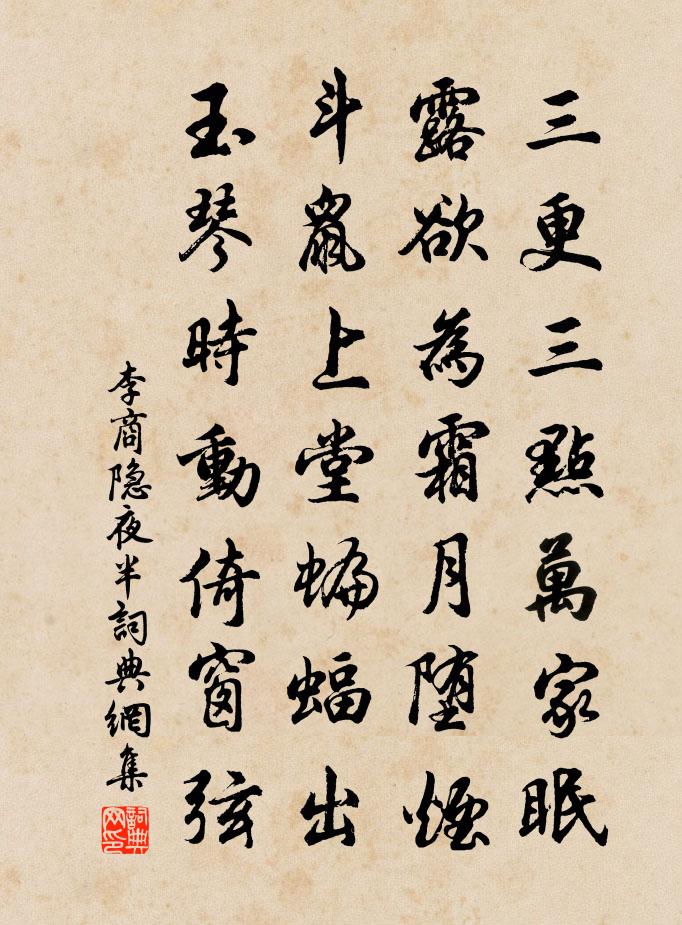 三更三點萬家眠
露欲為霜月墮煙
斗鼠上堂蝙蝠出
玉琴時動倚窗弦
李商隐夜半詞典網集
詞典网印